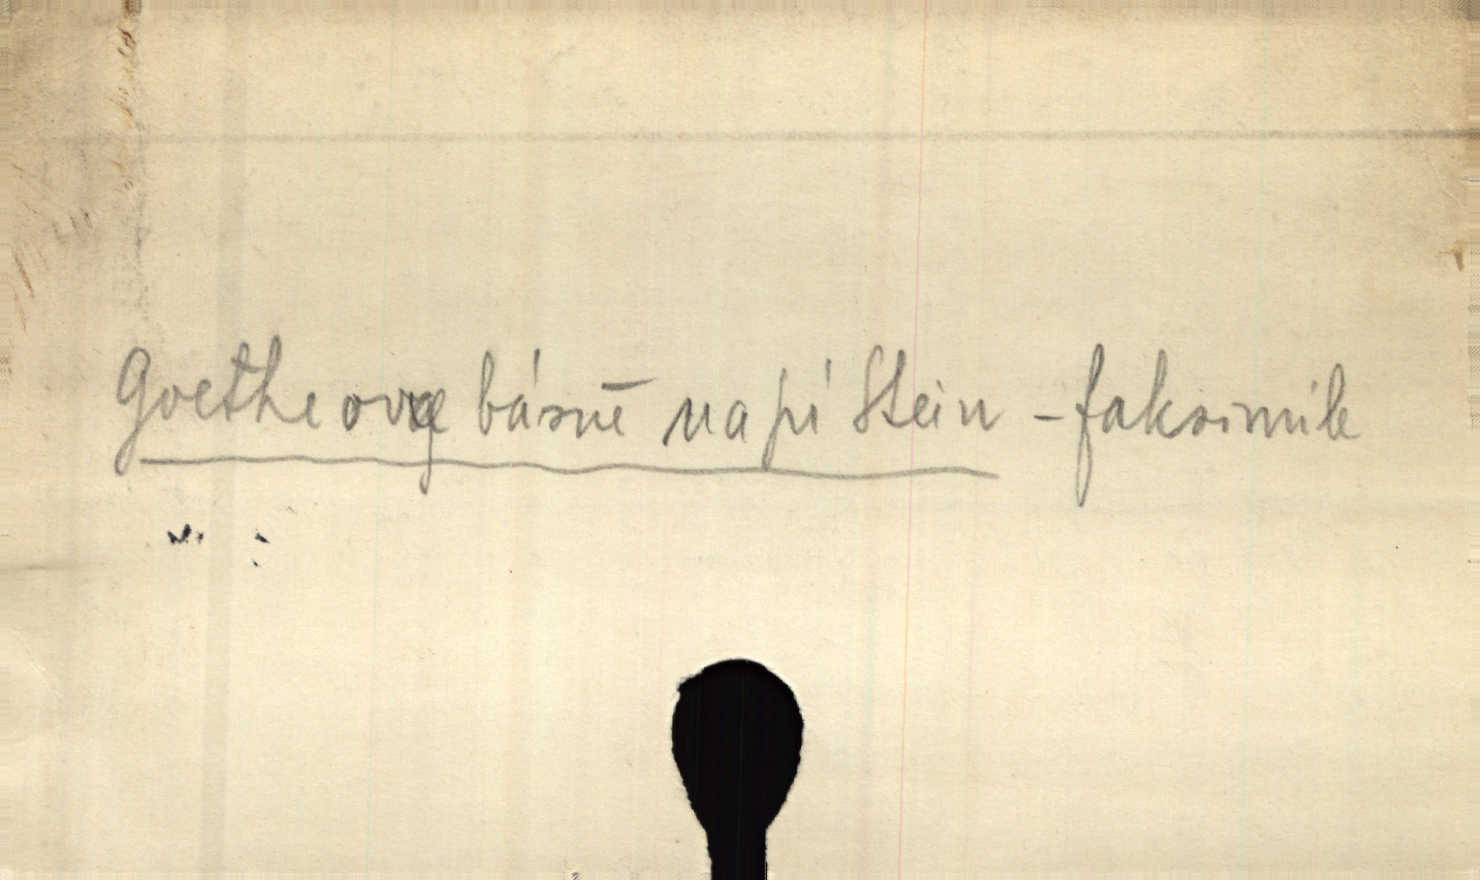 Goetheovy básně na pí Stein - faksimile